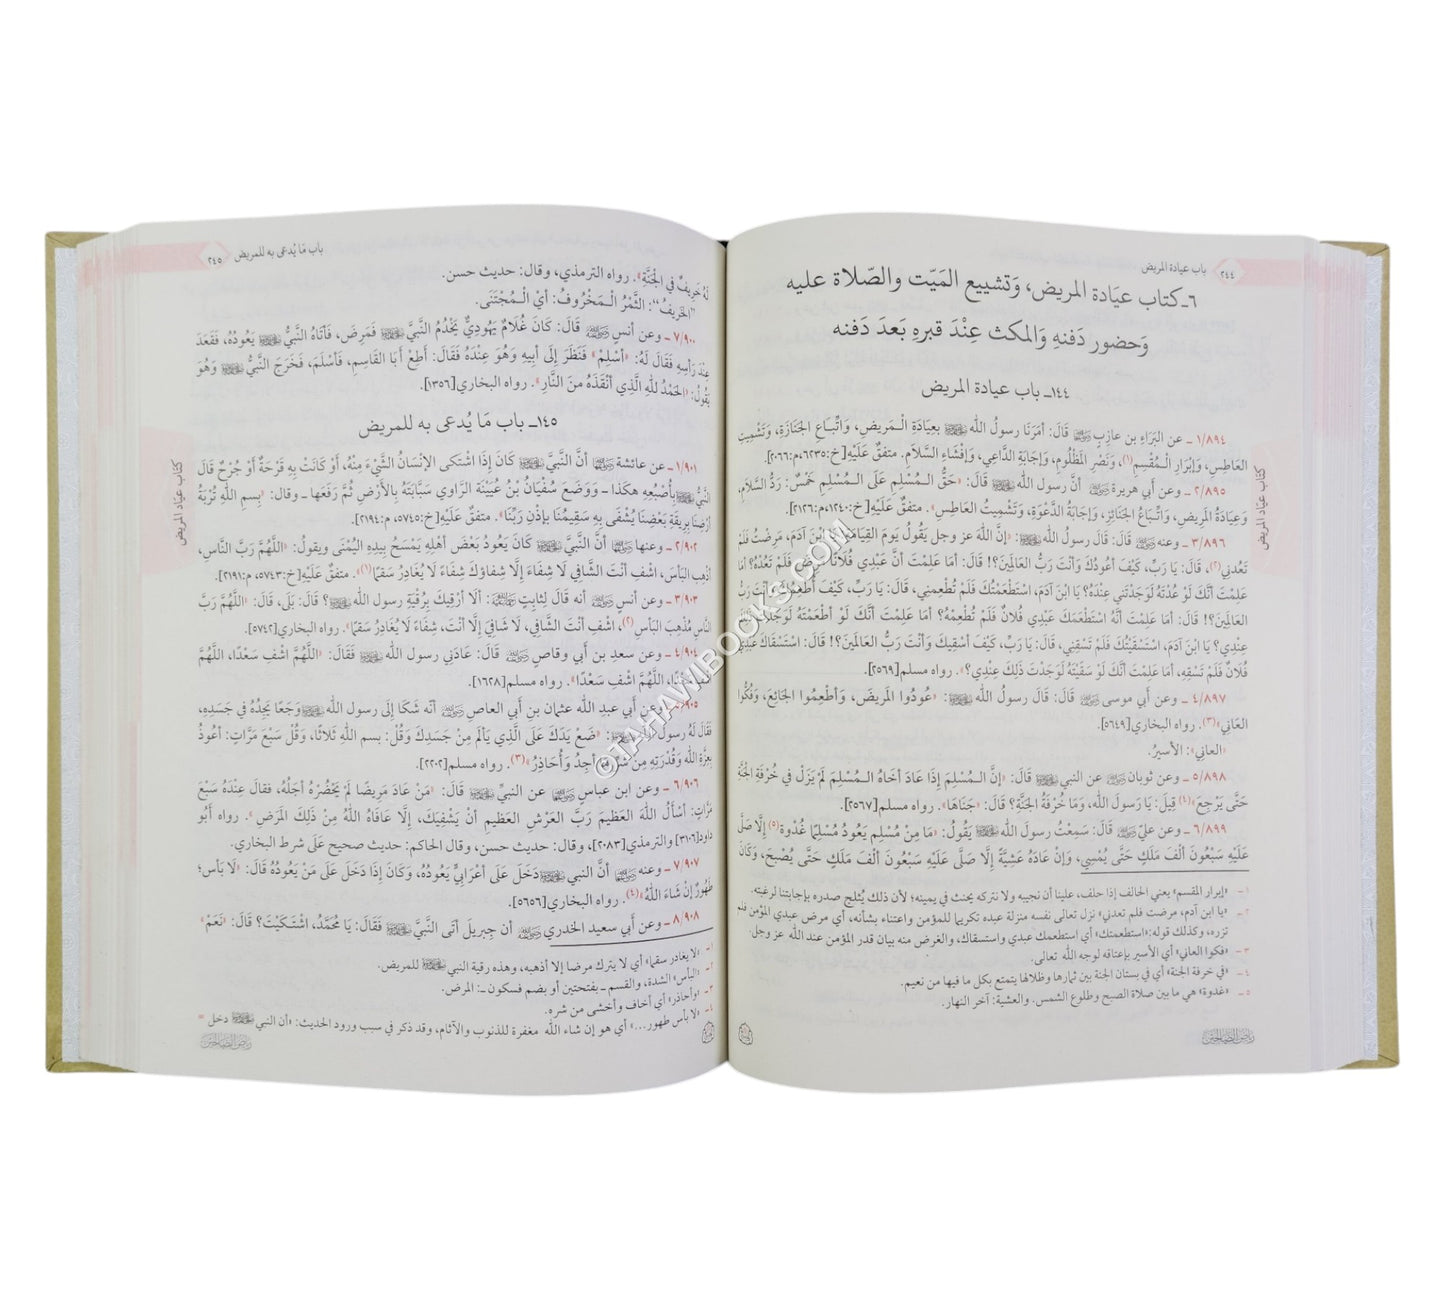 باب عيادة المريض ٢٤٤
٦ـ كتاب عيَادة المريض، وَتشييع المَيّت والصّلاة عليه
وَحضور دَفنهِ وَالمكث عِنْدَ قبرهِ بَعدَ دَفنه
١٤٤ـ باب عيادة المريض
١/٨٩٤ ـ عن البَرَاءِ بن عازِبٍ قَالَ: أمَرَنَا رسولُ الله ﷺ بِعِيَادَةِ الْـمَريضِ، وَاتِّبَـاعِ الجَنَازَةِ، وَتَشْمِيتِ
العَاطِسِ، وَإبْرَارِ الْـمُقْسِمِ(١)، وَنَصْرِ المَظْلُومِ، وَإجَابَةِ الدَّاعِي، وَإفْشَاءِ السَّلاَمِ. متفقٌ عَلَيْهِ[خ:٦٢٣٥،م:٢٠٦٦].
٢/٨٩٥ ـ وعن أَبي هريرة أنَّ رسولَ الله ﷺ قَالَ: «حَقُّ الْـمُسْلِمِ عَلَى الْـمُسْلِمِ خَمْسٌ: رَدُّ السَّلاَمِ،
وَعِيَادَةُ المَرِيض، وَاتِّبَاعُ الجَنَائِزِ، وَإجَابَةُ الدَّعْوَةِ، وَتَشْمِيتُ العَاطِسِ». متفقٌ عَلَيْهِ[خ:١٢٤٠،م:٢١٦٢].
٣/٨٩٦ ـ وعنه قَالَ: قَالَ رسولُ الله ﷺ: «إنَّ اللهَ عز وجل يَقُولُ يَومَ القِيَامَةِ: يَا ابْنَ آدَمَ، مَرِضْتُ فَلَمْ
تَعُدنِي(٢)، قَالَ: يَا رَبِّ، كَيْفَ أعُودُكَ وَأنْتَ رَبُّ العَالَمِينَ؟! قَالَ: أمَا عَلِمْتَ أنَّ عَبْدِي فُلاَنًا مَرِضَ فَلَمْ تَعُدْهُ؟ أمَا
عَلِمْتَ أنَّكَ لَوْ عُدْتَهُ لَوَجَدْتَني عِنْدَهُ؟ يَا ابْنَ آدَمَ، اسْتَطْعَمْتُكَ فَلَمْ تُطْعِمنِي، قَالَ: يَا رَبِّ، كَيْفَ أُطْعِمُكَ وَأنْتَ رَبُّ
العَالَمِينَ؟! قَالَ: أمَا عَلِمْتَ أنَّهُ اسْتَطْعَمَكَ عَبْدِي فُلاَنٌ فَلَمْ تُطْعِمْهُ؟ أمَا عَلِمْتَ أنَّكَ لَوْ أطْعَمْتَهُ لَوَجَدْتَ ذَلِكَ
عِنْدِي؟ يَا ابْنَ آدَمَ، اسْتَسْقَيْتُكَ فَلَمْ تَسْقِنِي، قَالَ: يَا رَبِّ، كَيْفَ أسْقِيكَ وَأنْتَ رَبُّ العَالَمينَ؟! قَالَ: اسْتَسْقَاكَ عَبْدِي
فُلاَنٌ فَلَمْ تَسْقِهِ، أمَا عَلِمْتَ أنَّكَ لَوْ سَقَيْتَهُ لَوَجَدْتَ ذَلِكَ عِنْدِي؟». رواه مسلم[٢٥٦٩].
٤/٨٩٧ ـ وعن أَبي موسى قَالَ: قَالَ رسولُ الله ﷺ: «عُودُوا المَريضَ، وَأطْعِمُوا الجَائِعَ، وَفُكُّوا
العَانِي»(٣). رواه البخاري[٥٦٤٩].
«العاني»: الأسيرُ.
٥/٨٩٨ ـ وعن ثوبان عن النبي ﷺ قَالَ: «إنَّ الْـمُسْلِمَ إذَا عَادَ أخَاهُ الْـمُسْلِمَ لَمْ يَزَلْ في خُرْفَةِ الْجَنَّةِ
حَتَّى يَرْجِعَ»(٤) قِيلَ: يَا رَسولَ الله، وَمَا خُرْفَةُ الجَنَّةِ؟ قَالَ: «جَنَاهَا». رواه مسلم[٢٥٦٧].
٦/٨٩٩ ـ وعن عليّ قَالَ: سَمِعْتُ رسولَ الله ﷺ يَقُولُ: «مَا مِنْ مُسْلِم يَعُودُ مُسْلِمًا غُدْوة(٥) إِلَّا صَلَّى
عَلَيْهِ سَبْعُونَ ألْفَ مَلَكٍ حَتَّى يُمْسِي، وَإنْ عَادَهُ عَشِيَّةً إِلَّا صَلَّى عَلَيْهِ سَبْعُونَ ألْفَ مَلَكٍ حَتَّى يُصْبحَ، وَكَانَ
١ ـ «إبرار المقسم» يعني الحالف إذا حلف، علينا أن نجيبه ولا نتركه يحنث في يمينه؛ لأن ذلك يُثلج صدره بإجابتنا لرغبته.
٢ ـ «يا ابن آدم، مرضت فلم تعدني» نزل تعالى نفسه منزلة عبده تكريما للمؤمن واعتناء بشأنه، أي مرض عبدي المؤمن فلم
تزره، وكذلك قوله:«استطعمتك» أي استطعمك عبدي واستسقاك، والغرض منه بيان قدر المؤمن عند الله عز وجل.
٣ ـ «فكوا العاني» أي الأسير بإعتاقه لوجه الله تعالى.
٤ ـ «في خرفة الجنة» أي في بستان الجنة بين ثمارها وظلالها يتمتع بكل ما فيها من نعيم.
٥ ـ «غدوة» هي ما بين صلاة الصبح وطلوع الشمس. والعشية: آخر النهار.
كتاب عيَاد المريض
رياض الصالحين
باب مَا يُدعى به للمريض ٢٤٥
لَهُ خَرِيفٌ في الْجَنَّةِ». رواه الترمذي، وقال: حديث حسن.
"الخَريفُ": الثَّمْرُ الْـمَخْرُوفُ: أيْ الْـمُجْتَنَى.
٧/٩٠٠ ـ وعن أنسٍ قَالَ: كَانَ غُلَامٌ يَهُودِيٌّ يَخْدُمُ النَّبيَّ ﷺ فَمَرِضَ، فَأتَاهُ النَّبيُّ ﷺ يَعُودُهُ، فَقَعَدَ
عِنْدَ رَأسِهِ فَقَالَ لَهُ: «أسْلِمْ» فَنَظَرَ إِلَى أبِيهِ وَهُوَ عِنْدَهُ فَقَالَ: أَطِعْ أَبَا القَاسِمِ، فَأسْلَمَ، فَخَرَجَ النَّبيُّ ﷺ وَهُوَ
يَقُولُ: «الحَمْدُ للهِ الَّذِي أنْقَذَهُ منَ النَّارِ». رواه البخاري[١٣٥٦].
١٤٥ـ باب مَا يُدعى به للمريض
١/٩٠١ ـ عن عائشة أنَّ النَّبيَّ ﷺ كَانَ إِذَا اشْتكى الإنْسَانُ الشَّيْءَ مِنْهُ، أَوْ كَانَتْ بِهِ قَرْحَةٌ أَوْ جُرْحٌ قَالَ
النَّبيُّ ﷺ بِأُصْبُعِهِ هكَذا ـ وَوَضَعَ سُفْيَانُ بْنُ عُيَيْنَة الرَّاوي سَبَّابَتَهُ بِالأَرْضِ ثُمَّ رَفَعَها ـ وقال: «بِسمِ اللهِ تُرْبَةُ
أرْضِنَا بِرِيقَةِ بَعْضِنَا يُشْفَى بِهِ سَقِيمُنَا بِإذْنِ رَبِّنَا». متفقٌ عَلَيْهِ[خ:٥٧٤٥،م:٢١٩٤].
٢/٩٠٢ ـ وعنها أنَّ النَّبيَّ ﷺ كَانَ يَعُودُ بَعْضَ أهْلِهِ يَمْسَحُ بِيدِهِ اليُمْنَى ويقولُ: «اللَّهُمَّ رَبَّ النَّاسِ،
أذْهِب البَأسَ، اشْفِ أنْتَ الشَّافِي لَا شِفَاءَ إِلَّا شِفاؤكَ شِفَاءً لَا يُغَادِرُ سَقَمًا»(١). متفقٌ عَلَيْهِ[خ:٥٧٤٣،م:٢١٩١].
٣/٩٠٣ ـ وعن أنسٍ أنه قَالَ لِثابِتٍ: ألا أرْقِيكَ بِرُقْيَةِ رسولِ الله ﷺ؟ قَالَ: بَلَى، قَالَ: «اللَّهُمَّ رَبَّ
النَّاسِ مُذْهِبَ البَأسِ(٢)، اشْفِ أنْتَ الشَّافِي، لَا شَافِيَ إِلَّا أنْتَ، شِفَاءً لَا يُغَادِرُ سَقَمًا». رواه البخاري[٥٧٤٢].
٤/٩٠٤ ـ وعن سعدِ بن أَبي وقاصٍ قَالَ: عَادَني رسولُ الله ﷺ فَقَالَ: «اللَّهُمَّ اشْفِ سَعْدًا، اللَّهُمَّ
اشْفِ سَعْدًا، اللَّهُمَّ اشْفِ سَعْدًا». رواه مسلم[١٦٢٨].
٥/٩٠٥ ـ وعن أَبي عبدِ الله عثمان بن أَبي العاصِ أنّه شَكَا إِلَى رسولِ الله ﷺ وَجَعًا يَجِدُهُ في جَسَدِهِ،
فَقَالَ لَهُ رسولُ الله ﷺ: «ضَعْ يَدَكَ عَلَى الَّذِي يَألَم مِنْ جَسَدِكَ وَقُلْ: بسم اللهِ ثَلاثًا، وَقُلْ سَبْعَ مَرَّاتٍ: أعُوذُ
بِعِزَّةِ الله وَقُدْرَتِهِ مِنْ شَرِّ مَا أجِدُ وَأُحَاذِرُ»(٣). رواه مسلم[٢٢٠٢].
٦/٩٠٦ ـ وعن ابن عباسٍ عن النبيِّ ﷺ قَالَ: «مَنْ عَادَ مَرِيضًا لَمْ يَحْضُرْهُ أجَلُهُ، فقالَ عِنْدَهُ سَبْعَ
مَرَّاتٍ: أسْألُ اللهَ العَظيمَ رَبَّ العَرْشِ العَظيمِ أنْ يَشْفِيَكَ، إلَّا عَافَاهُ اللهُ مِنْ ذَلِكَ المَرَضِ». رواه أَبُو
داود[٣١٠٦] والترمذي[٢٠٨٣]، وقال: حديث حسن، وقال الحاكم: حديث صحيح عَلَى شرط البخاري.
٧/٩٠٧ ـ وعنه أنَّ النبي ﷺ دَخَلَ عَلَى أعْرَابِيٍّ يَعُودُهُ، وَكَانَ إِذَا دَخَلَ عَلَى مَنْ يَعُودُهُ قَالَ: «لَا بَأسَ؛
طَهُورٌ إنْ شَاءَ اللهُ»(٤). رواه البخاري[٥٦٥٦].
٨/٩٠٨ ـ وعن أَبي سعيد الخدري أن جِبريلَ أتَى النَّبيَّ ﷺ فَقَالَ: يَا مُحَمَّدُ، اشْتَكَيْتَ؟ قَالَ: «نَعَمْ»
١ ـ «لا يغادر سقما» أي لا يترك مرضا إلا أذهبه، وهذه رقية النبي ﷺ للمريض.
٢ ـ «البأس» الشدة، والقسم ـ بفتحتين أو بضم فسكون ـ: المرض.
٣ ـ «وأحاذر» أي أخاف وأخشى من شره.
٤ ـ «لا بأس طهور...» أي هو إن شاء الله مغفرة للذنوب والآثام، وقد ذكر في سبب ورود الحديث: «أن النبي ﷺ دخل =
كتاب عيَاد المريض
رياض الصالحين
©TAHAWIBOOKS.COM